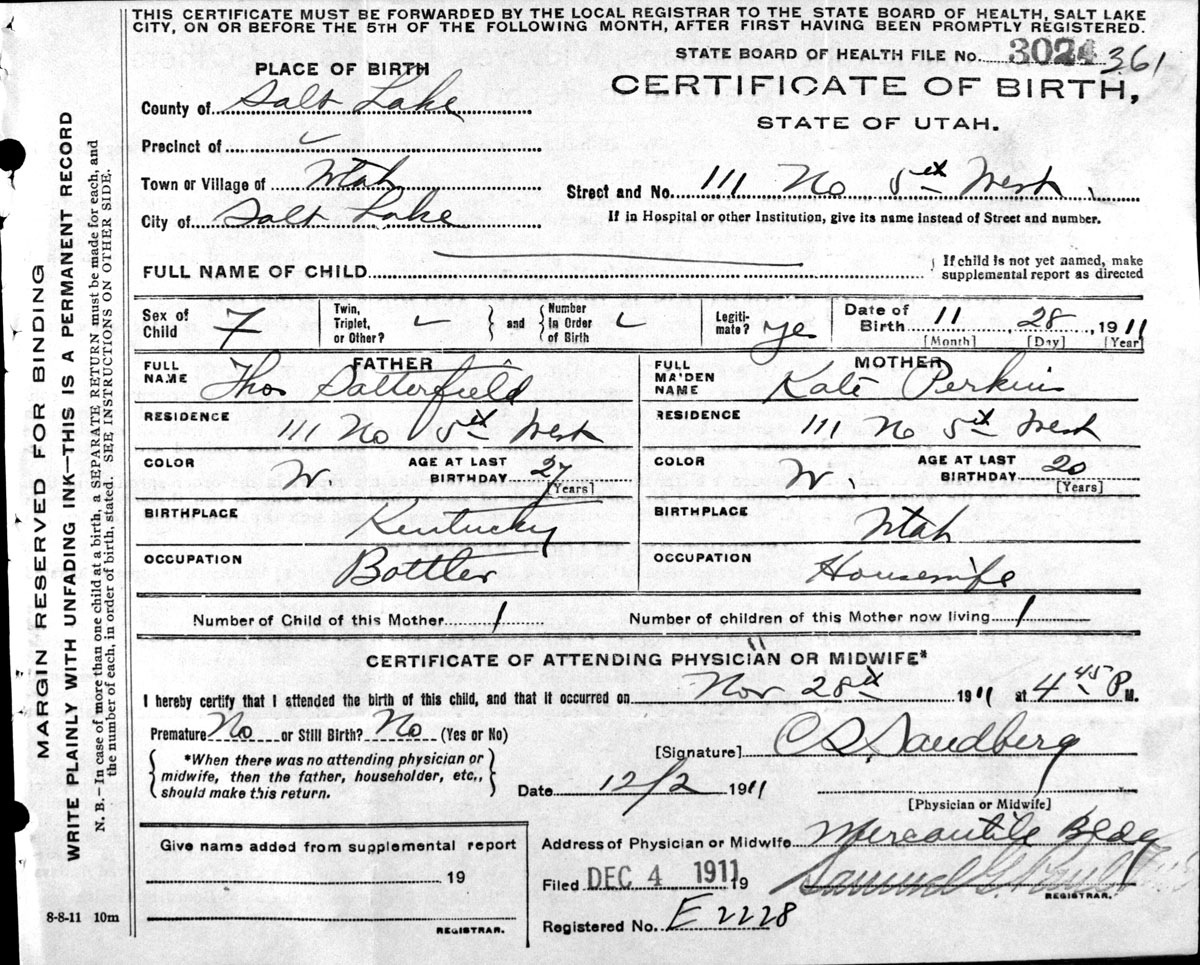 THIS CERTIFICATE MUST BE FORWARDED BY THE LOCAL REGISTRAR TO THE STATE BOARD OF HEALTH, SALT LAKE
CITY, ON OR BEFORE THE 5TH OF THE FOLLOWING MONTH, AFTER FIRST HAVING BEEN PROMPTLY REGISTERED.
STATE BOARD OF HEALTH FILE No. 3024 361
CERTIFICATE OF BIRTH,
STATE OF UTAH.
PLACE OF BIRTH
County of Salt Lake
Precinct of
Town or Village of Utah
City of Salt Lake
Street and No. 111 No 5th West
If in Hospital or other Institution, give its name instead of Street and number.
FULL NAME OF CHILD
If child is not yet named, make
supplemental report as directed
Sex of Child F
Twin, Triplet, or Other?
and
Number in Order of Birth
Legiti-mate? ye
Date of Birth 11 28 1911
[Month] [Day] [Year]
FATHER
FULL NAME Thos Satterfield
RESIDENCE 111 No 5th West
COLOR W AGE AT LAST BIRTHDAY 27
[Years]
BIRTHPLACE Kentucky
OCCUPATION Bottler
MOTHER
FULL MAIDEN NAME Kate Perkins
RESIDENCE 111 No 5th West
COLOR W. AGE AT LAST BIRTHDAY 20
[Years]
BIRTHPLACE Utah
OCCUPATION Housewife
Number of Child of this Mother 1
Number of children of this Mother now living 1
CERTIFICATE OF ATTENDING PHYSICIAN OR MIDWIFE*
I hereby certify that I attended the birth of this child, and that it occurred on Nov 28th 1911 at 4 45 P M.
Premature? No or Still Birth? No (Yes or No)
*When there was no attending physician or
midwife, then the father, householder, etc.,
should make this return.
[Signature] C S Sandberg
Date 12/2 1911
[Physician or Midwife]
Address of Physician or Midwife Mercantile Bldg
Filed DEC 4 1911 19 Samuel G. Paul
REGISTRAR.
Registered No. E 2228
Give name added from supplemental report
19
REGISTRAR.
8-8-11 10m
MARGIN RESERVED FOR BINDING
WRITE PLAINLY WITH UNFADING INK—THIS IS A PERMANENT RECORD
N. B.—In case of more than one child at a birth, a SEPARATE RETURN must be made for each, and
the number of each, in order of birth, stated. SEE INSTRUCTIONS ON OTHER SIDE.